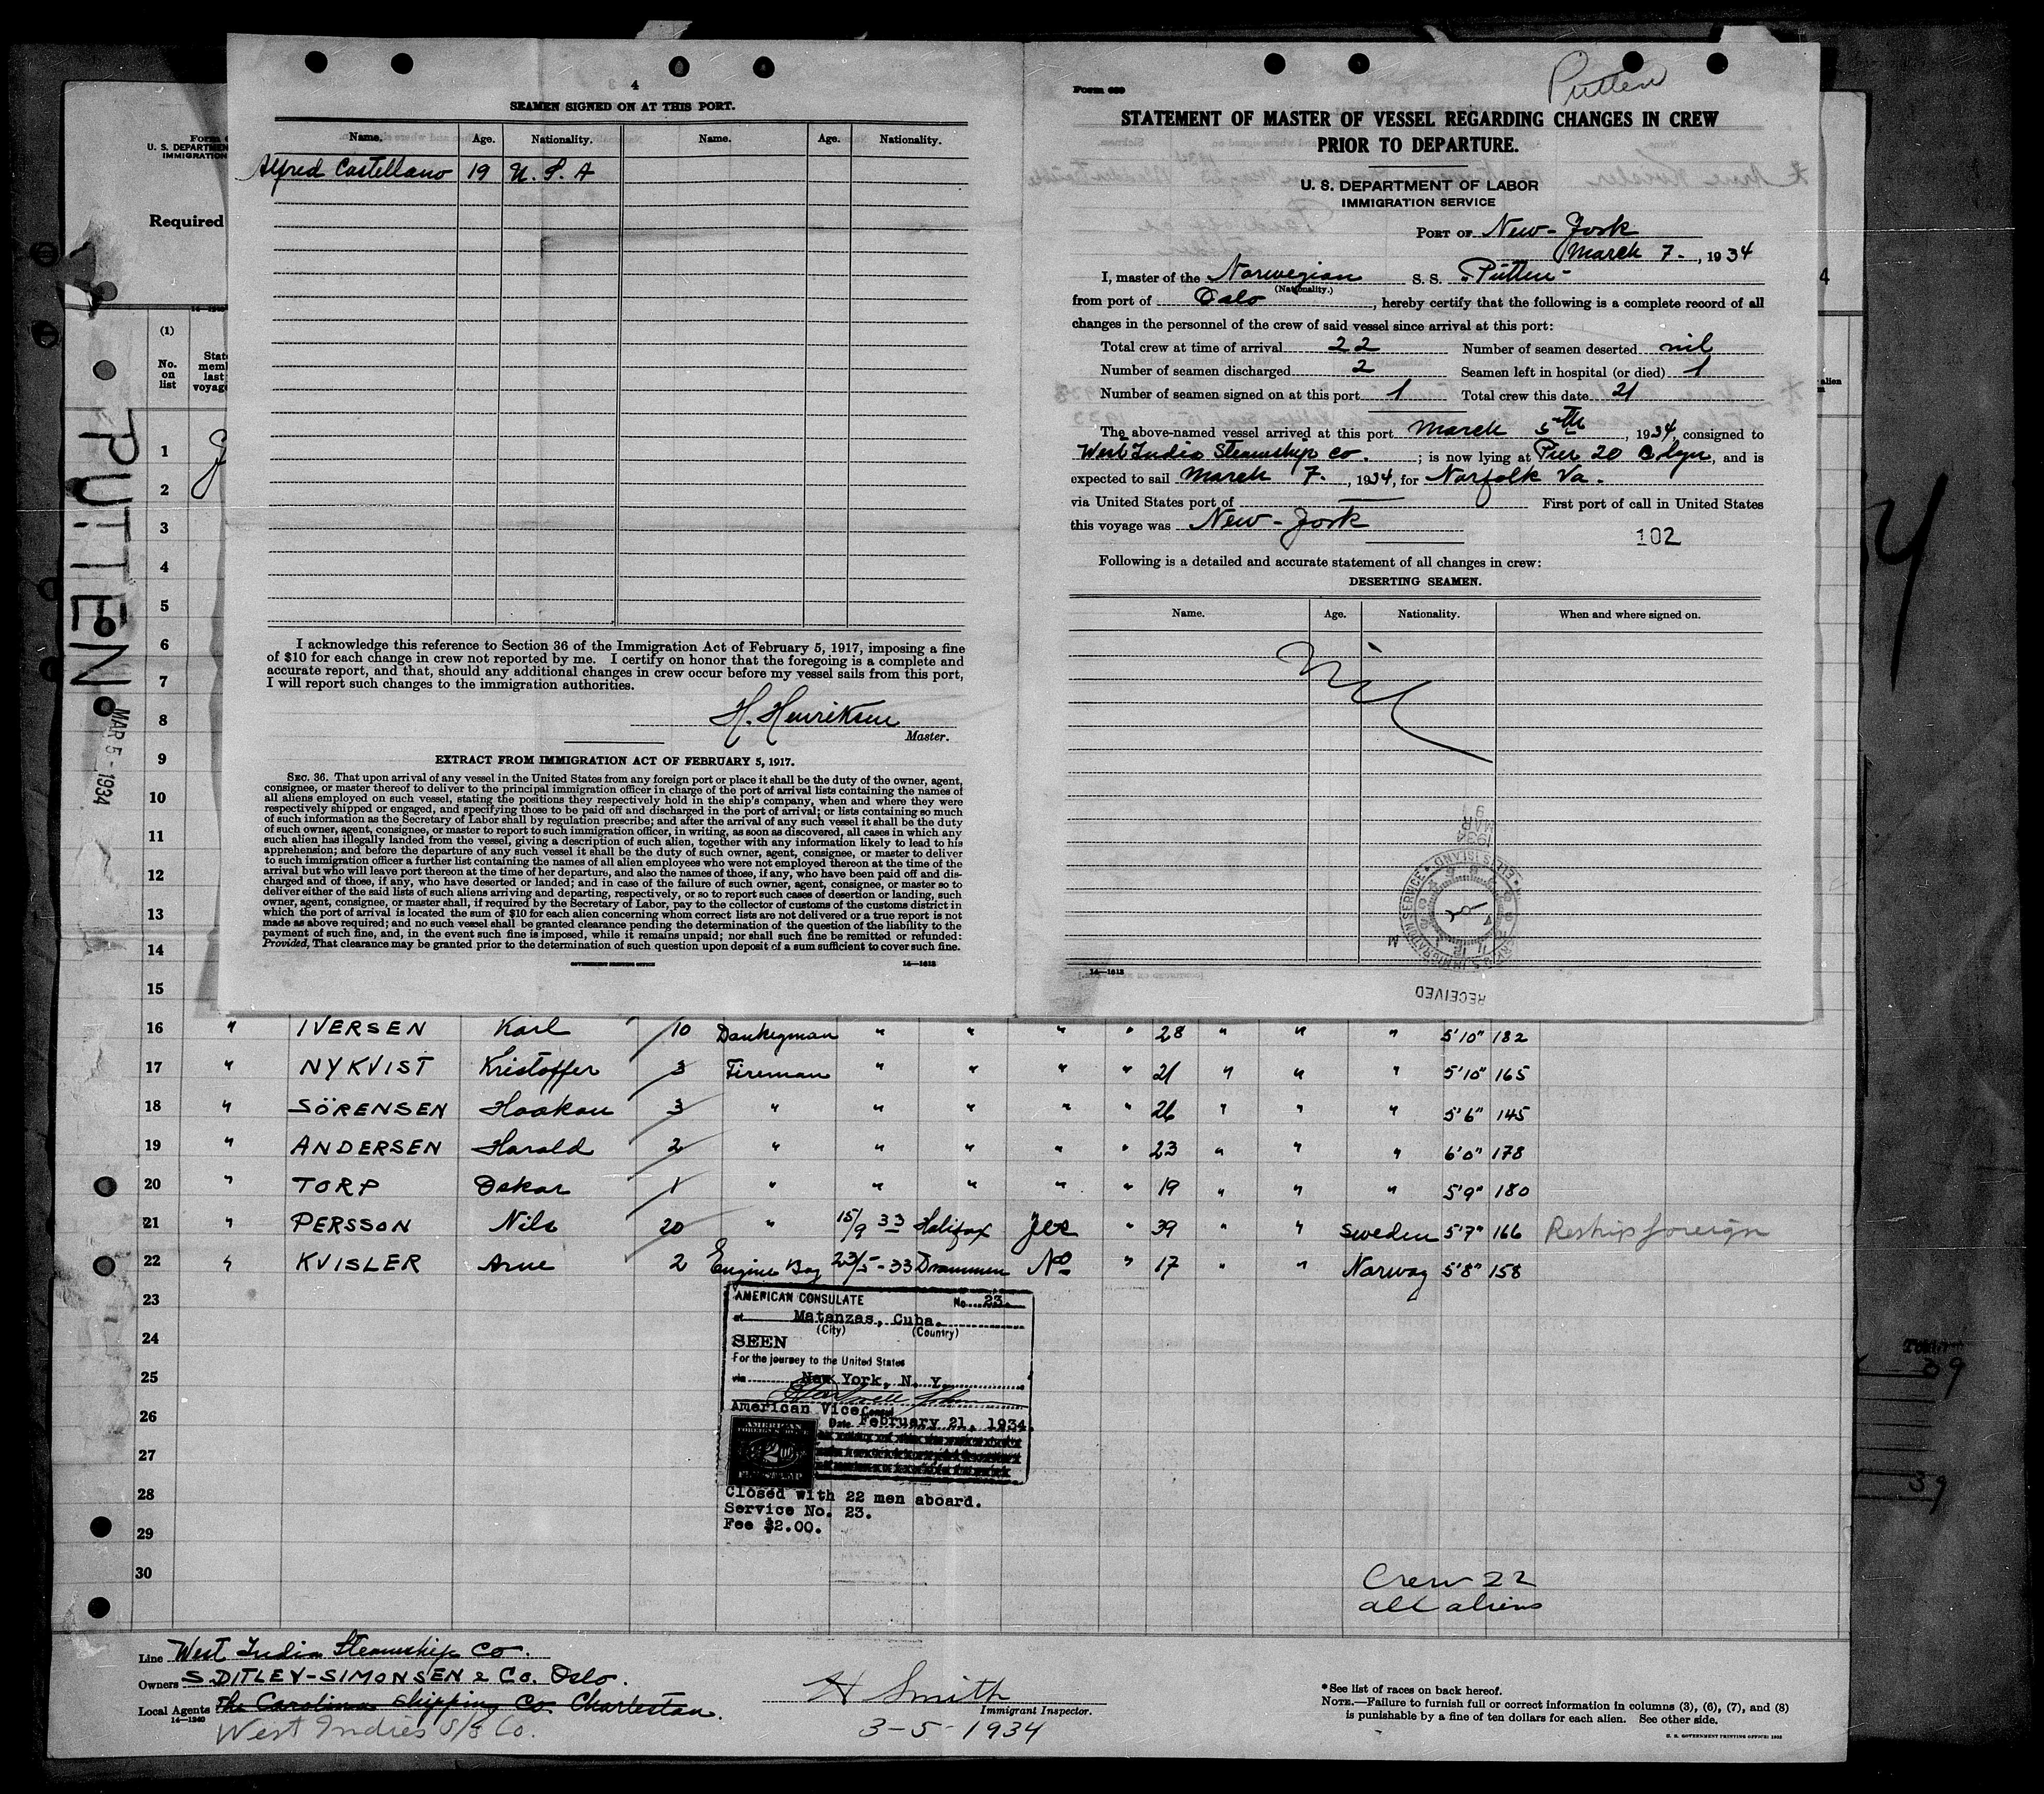 4
SEAMEN SIGNED ON AT THIS PORT.
Name. Age. Nationality. Name. Age. Nationality.
Alfred Castellano 19 U. S. A
I acknowledge this reference to Section 36 of the Immigration Act of February 5, 1917, imposing a fine
of $10 for each change in crew not reported by me. I certify on honor that the foregoing is a complete and
accurate report, and that, should any additional changes in crew occur before my vessel sails from this port,
I will report such changes to the immigration authorities.
H. Henriksen
Master.
EXTRACT FROM IMMIGRATION ACT OF FEBRUARY 5, 1917.
SEC. 36. That upon arrival of any vessel in the United States from any foreign port or place it shall be the duty of the owner, agent,
consignee, or master thereof to deliver to the principal immigration officer in charge of the port of arrival lists containing the names of
all aliens employed on such vessel, stating the positions they respectively hold in the ship's company, when and where they were
respectively shipped or engaged, and specifying those to be paid off and discharged in the port of arrival; or lists containing so much
of such information as the Secretary of Labor shall by regulation prescribe; and after the arrival of any such vessel it shall be the duty
of such owner, agent, consignee, or master to report to such immigration officer, in writing, as soon as discovered, all cases in which any
such alien has illegally landed from the vessel, giving a description of such alien, together with any information likely to lead to his
apprehension; and before the departure of any such vessel it shall be the duty of such owner, agent, consignee, or master to deliver
to such immigration officer a further list containing the names of all alien employees who were not employed thereon at the time of the
arrival but who will leave port thereon at the time of her departure, and also the names of those, if any, who have been paid off and dis-
charged and of those, if any, who have deserted or landed; and in case of the failure of such owner, agent, consignee, or master so to
deliver either of the said lists of such aliens arriving and departing, respectively, or so to report such cases of desertion or landing, such
owner, agent, consignee, or master shall, if required by the Secretary of Labor, pay to the collector of customs of the customs district in
which the port of arrival is located the sum of $10 for each alien concerning whom correct lists are not delivered or a true report is not
made as above required; and no such vessel shall be granted clearance pending the determination of the question of the liability to the
payment of such fine, and, in the event such fine is imposed, while it remains unpaid; nor shall such fine be remitted or refunded:
Provided, That clearance may be granted prior to the determination of such question upon deposit of a sum sufficient to cover such fine.
GOVERNMENT PRINTING OFFICE 14—1613
Putten
Form 689
STATEMENT OF MASTER OF VESSEL REGARDING CHANGES IN CREW
PRIOR TO DEPARTURE.
U. S. DEPARTMENT OF LABOR
IMMIGRATION SERVICE
PORT OF New-York
March 7., 1934
I, master of the Norwegian S. S. "Putten"
(Nationality.)
from port of Oslo, hereby certify that the following is a complete record of all
changes in the personnel of the crew of said vessel since arrival at this port:
Total crew at time of arrival 22 Number of seamen deserted nil
Number of seamen discharged 2 Seamen left in hospital (or died) 1
Number of seamen signed on at this port 1 Total crew this date 21
The above-named vessel arrived at this port March 5th, 1934, consigned to
West India Steamship Co.; is now lying at Pier 20 Bklyn, and is
expected to sail March 7., 1934, for Norfolk Va.
via United States port of First port of call in United States
this voyage was New-York
102
Following is a detailed and accurate statement of all changes in crew:
DESERTING SEAMEN.
Name. Age. Nationality. When and where signed on.
Nil
1934 MAR 9
RECEIVED
14—1613
U. S. DEPARTMEN
IMMIGRATION
Required
(1)
No. on list
PUTTEN
MAR 5 - 1934
1
2
3
4
5
6
7
8
9
10
11
12
13
14
15
16 " IVERSEN Karl 10 Donkeyman " " " " 28 " " " 5'10" 182
17 " NYKVIST Kristoffer 3 Fireman " " " " 21 " " " 5'10" 165
18 " SÖRENSEN Haakon 3 " " " " " 26 " " " 5'6" 145
19 " ANDERSEN Harald 2 " " " " " 23 " " " 6'0" 178
20 " TORP Oskar 1 " " " " " 19 " " " 5'9" 180
21 " PERSSON Nils 20 " 15/9 33 Halifax Yes " 39 " " Sweden 5'7" 166 Reship foreign
22 " KVISLER Arne 2 Engine Boy 23/5-33 Drammen No " 17 " " Norway 5'8" 158
23
24
25
26
27
28
29
30
AMERICAN CONSULATE No. 23
at Matanzas, Cuba.
(City) (Country)
SEEN
For the journey to the United States
via New York, N. Y.
American Vice Consul
Date February 21, 1934.
Closed with 22 men aboard.
Service No. 23.
Fee $2.00.
Crew 22
all aliens
Line West India Steamship Co.
Owners S. DITLEV-SIMONSEN & Co. Oslo.
Local Agents The Carolina Shipping Co. Charleston.
14—1240
West Indies S/S Co.
H Smith
Immigrant Inspector.
3-5-1934
*See list of races on back hereof.
NOTE.—Failure to furnish full or correct information in columns (3), (6), (7), and (8)
is punishable by a fine of ten dollars for each alien. See other side.
U. S. GOVERNMENT PRINTING OFFICE: 1932
4
39
39